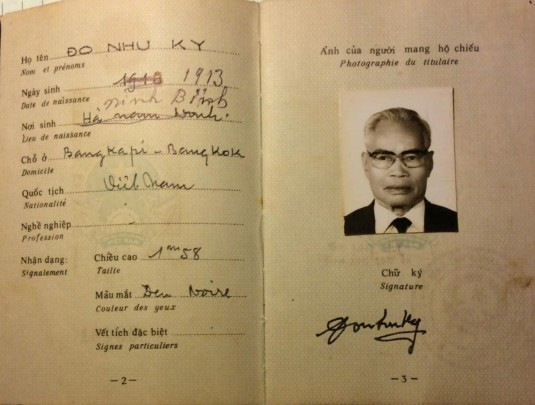 Họ tên ĐO NHU KY
Nom et prénoms
Ngày sinh 1918 1913
Date de naissance Ninh Bình
Nơi sinh
Lieu de naissance
Chỗ ở Bangkapi - Bangkok
Domicile
Quốc tịch Việt Nam
Nationalité
Nghề nghiệp
Profession
Nhận dạng: Chiều cao 1m58
Signalement Taille
Mầu mắt Đen Noire
Couleur des yeux
Vết tích đặc biệt
Signes particuliers
— 2 —
Ảnh của người mang hộ chiếu
Photographie du titulaire
Chữ ký
Signature
— 3 —